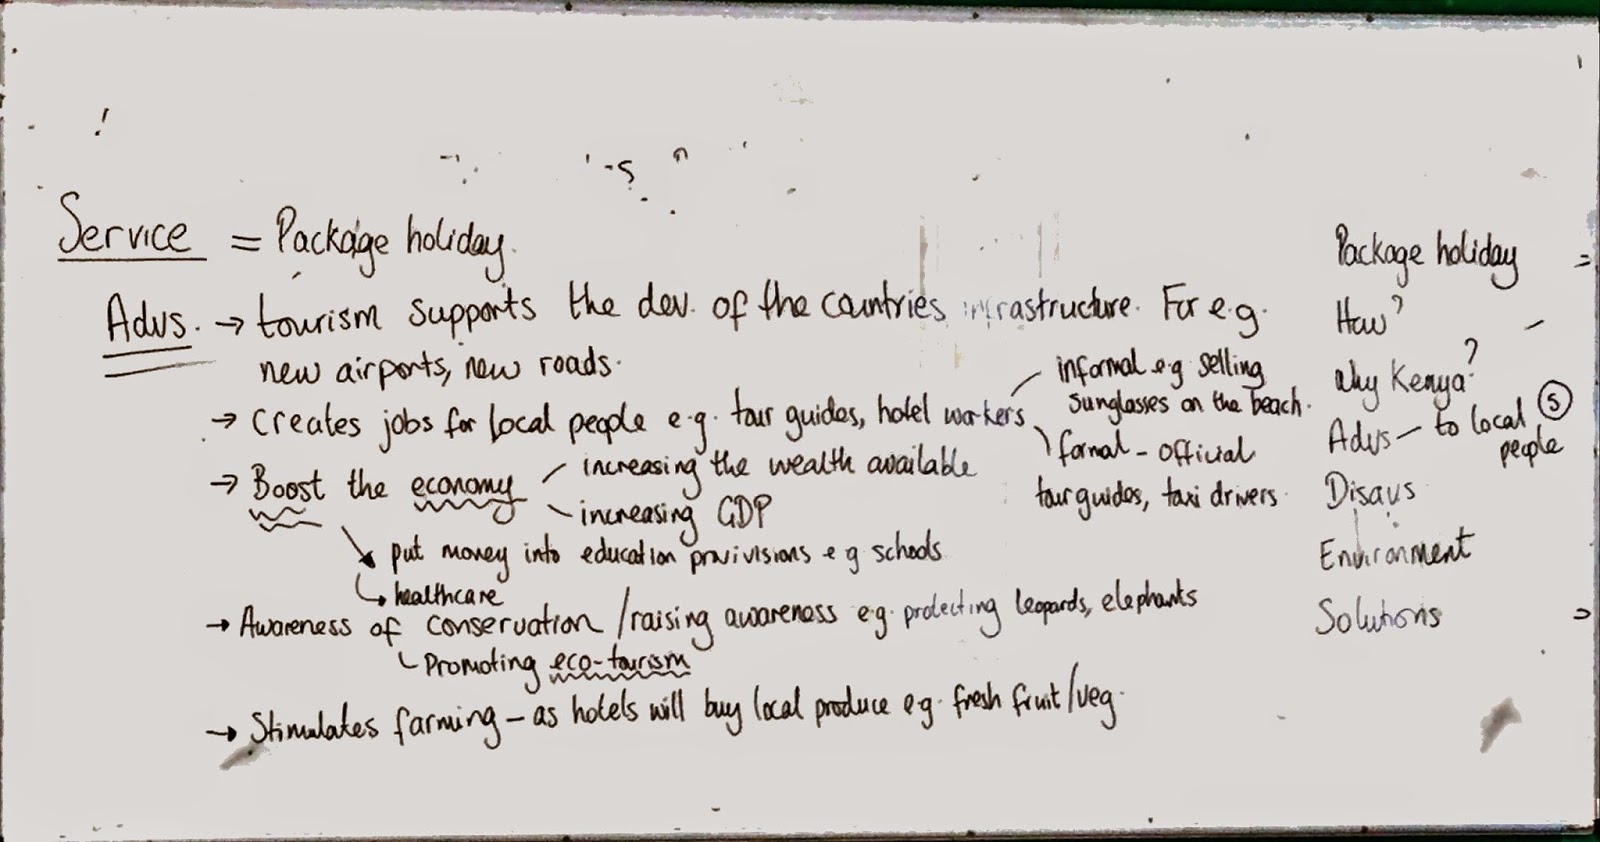 Service = Package holiday.
Advs. → tourism supports the dev. of the countries infrastructure. For e.g.
new airports, new roads.
→ creates jobs for local people e.g. tour guides, hotel workers
informal e.g selling
sunglasses on the beach.
formal - official
tour guides, taxi drivers.
→ Boost the economy
increasing the wealth available
increasing GDP
put money into education provivisions e g schools
↳ healthcare
→ Awareness of conservation / raising awareness e.g. protecting leopards, elephants
Promoting eco-tourism
→ Stimulates farming - as hotels will buy local produce e.g. fresh fruit/veg.
Package holiday =
How?
Why Kenya?
Advs - to local 5
people
Disavs
Environment
Solutions